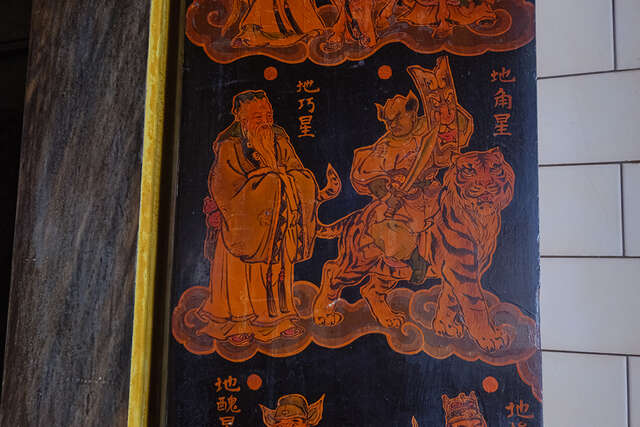 地角星
地巧星
地醜星
地